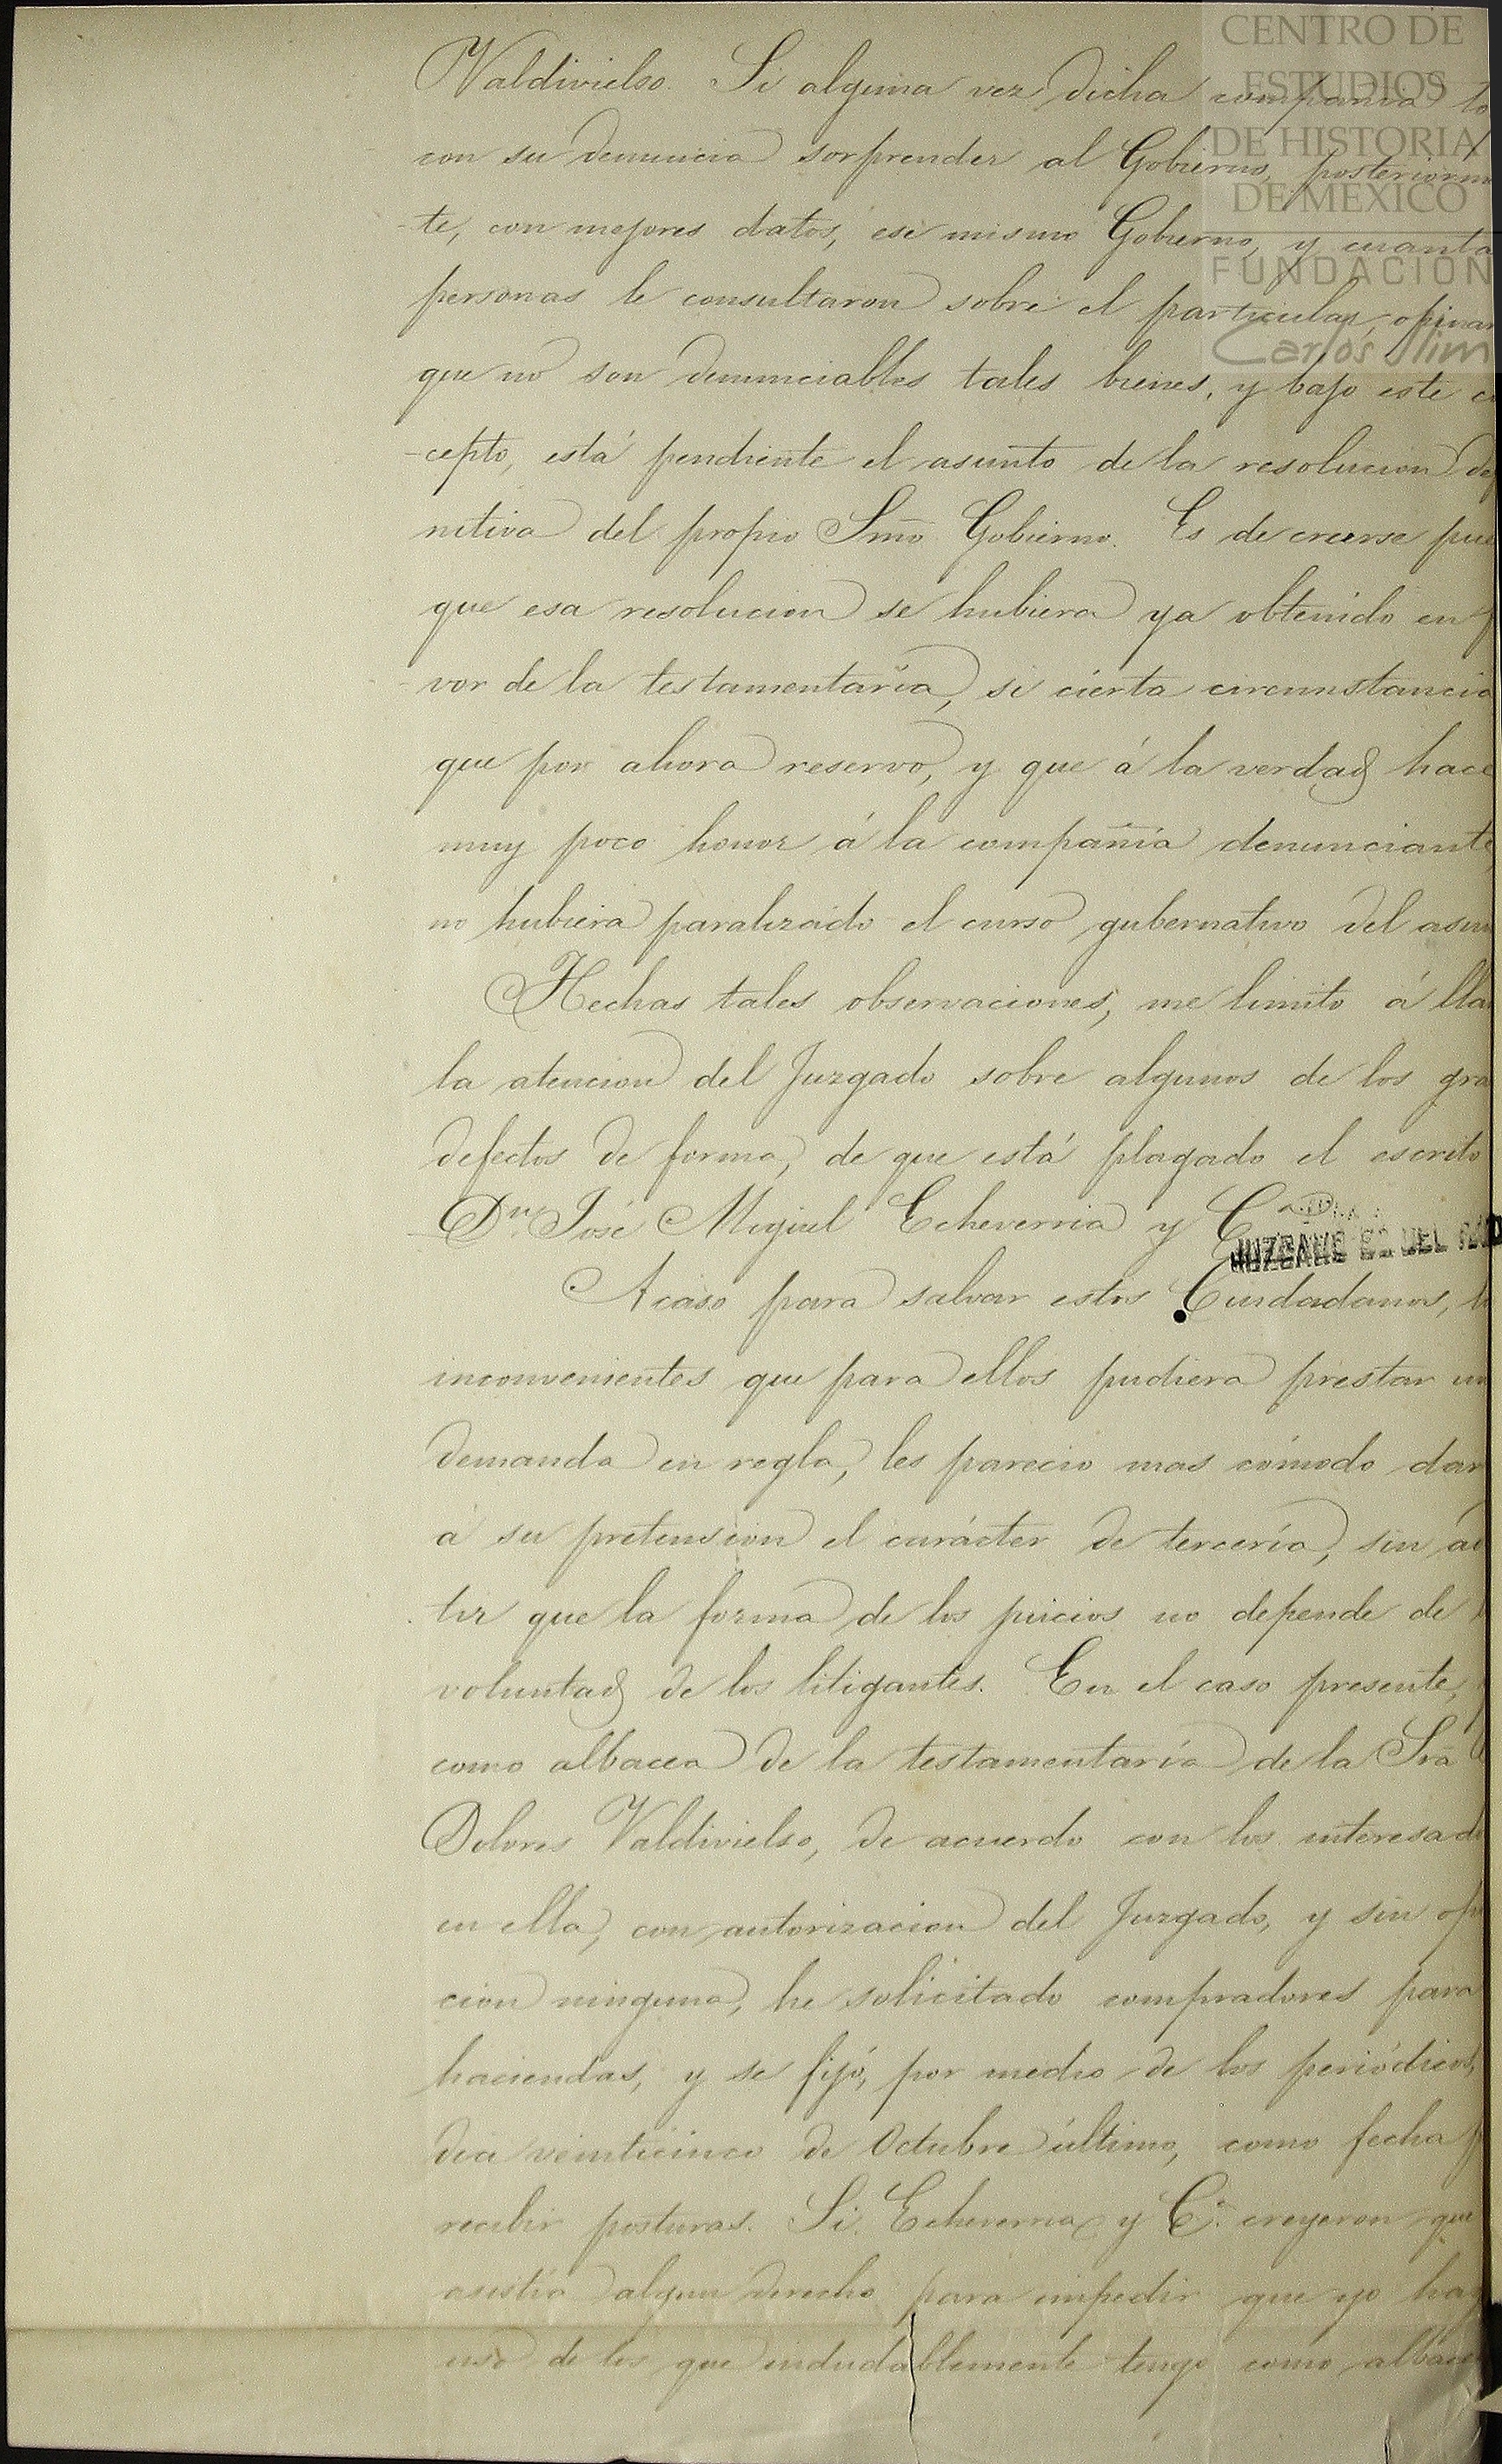 CENTRO DE
ESTUDIOS
DE HISTORIA
DE MEXICO
FUNDACIÓN
Carlos Slim
Valdivielso. Si alguna vez dicha compañía
con su denuncia sorprender al Gobierno, posteriorm
-te, con mejores datos, ese mismo Gobierno, y cuanta
personas le consultaron sobre el particular, opinar
que no son denunciables tales bienes, y bajo este
-cepto, está pendiente el asunto de la resolucion
nitiva del propio Smõ Gobierno. Es de creerse pue
que esa resolucion se hubiera ya obtenido en
vor de la testamentaría, si cierta circunstancia
que por ahora reservo, y que á la verdad hace
muy poco honor á la compañía denunciante
no hubiera paralizado el curso gubernativo del asun
Hechas tales observaciones, me limito á lla
la atencion del Juzgado sobre algunos de los gra
defectos de forma, de que está plagado el escrito
Dn José Miguel Echeverria y Ca
JUZGADO DEL
Acaso para salvar estos Ciudadanos,
inconvenientes que para ellos pudiera prestar un
demanda en regla, les parecio mas cómodo dar
a su pretension el carácter de tercería, sin
tir que la forma de los juicios no depende de
voluntad de los litigantes. En el caso presente,
como albacea de la testamentaría de la Sra
Dolores Valdivielso, de acuerdo con los interesad
en ella, con autorizacion del Juzgado, y sin op
cion ninguna, he solicitado compradores para
haciendas, y se fijó, por medio de los periódicos,
dia veinticinco de Octubre último, como fecha
recibir posturas. Si Echeverria y Ca. creyeron que
asistia algun derecho para impedir que yo hag
uso de los que indudablemente tengo como albace